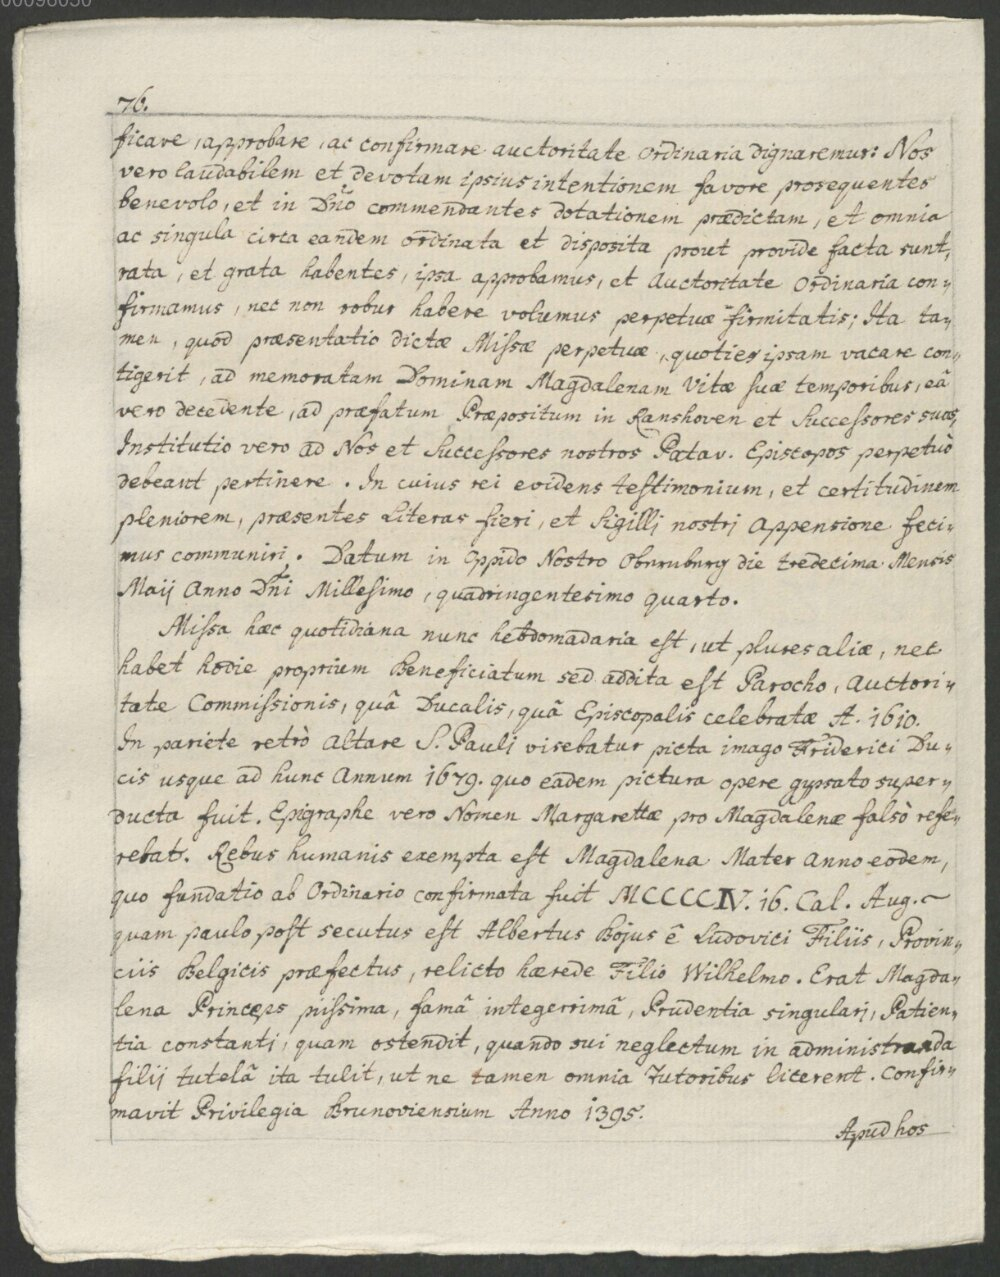 00096030
76.
ficare, approbare, ac confirmare auctoritate ordinaria dignaremur: Nos
vero laudabilem et devotam ipsius intentionem favore prosequentes
benevolo, et in Dño commendantes dotationem prædictam, et omnia
ac singula circa eandem ordinata et disposita prout provide facta sunt,
rata, et grata habentes, ipsa approbamus, et Auctoritate Ordinaria con„
firmamus, nec non robur habere volumus perpetuæ firmitatis; Ita ta„
men, quod præsentatio dictæ Missæ perpetuæ, quoties ipsam vacare con„
tigerit, ad memoratam Dominam Magdalenam Vitæ suæ temporibus, eâ
vero decedente, ad præfatum Præpositum in Ranshoven et Successores suos,
Institutio vero ad Nos et Successores nostros Patav. Episcopos perpetuò
debeant pertinere. In cuius rei evidens testimonium, et certitudinem
pleniorem, præsentes Literas fieri, et Sigillj nostrj Appensione feci„
mus communiri. Datum in Oppido Nostro Obernburg die tredecima Mensis
Maij Anno Dñi Millesimo, quadringentesimo quarto.
Missa hæc quotidiana nunc hebdomadaria est, ut plures aliæ, nec
habet hodie proprium Beneficiatum sed addita est Parocho, Auctori„
tate Commissionis, quâ Ducalis, quâ Episcopalis celebratæ A. 1610.
In pariete retrò Altare S. Pauli visebatur picta imago Friderici Du„
cis usque ad hunc Annum 1679. quo eadem pictura opere gypsato super„
ducta fuit. Epigraphe vero Nomen Margarettæ pro Magdalenæ falsò refe„
rebat. Rebus humanis exempta est Magdalena Mater Anno eodem,
quo fundatio ab Ordinario confirmata fuit MCCCCIV. 16. Cal. Aug.~
quam paulo post secutus est Albertus Bojus ê Ludovici Filiis, Provin„
ciis Belgicis præfectus, relicto hærede Filio Wilhelmo. Erat Magda„
lena Princeps piissima, famâ integerrimâ, Prudentia singularj, Patien„
tia constantj, quam ostendit, quando sui neglectum in administranda
filij tutelâ ita tulit, ut ne tamen omnia Tutoribus licerent. Confir„
mavit Privilegia Brunoviensium Anno 1395.
Apud hos